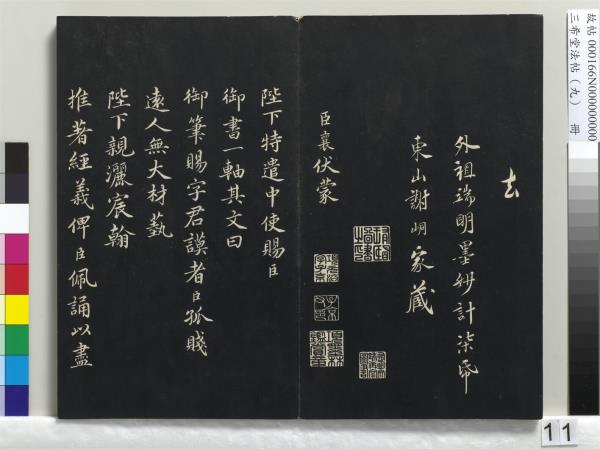 故帖 000166N000000000
三希堂法帖（九） 冊
去
外祖端明墨妙計柒帋
東山謝峒家藏
臣襄伏蒙
陛下特遣中使賜臣
御書一軸其文曰
御筆賜字君謨者臣孤賤
遠人無大材藝
陛下親灑宸翰
推著經義俾臣佩誦以盡
11